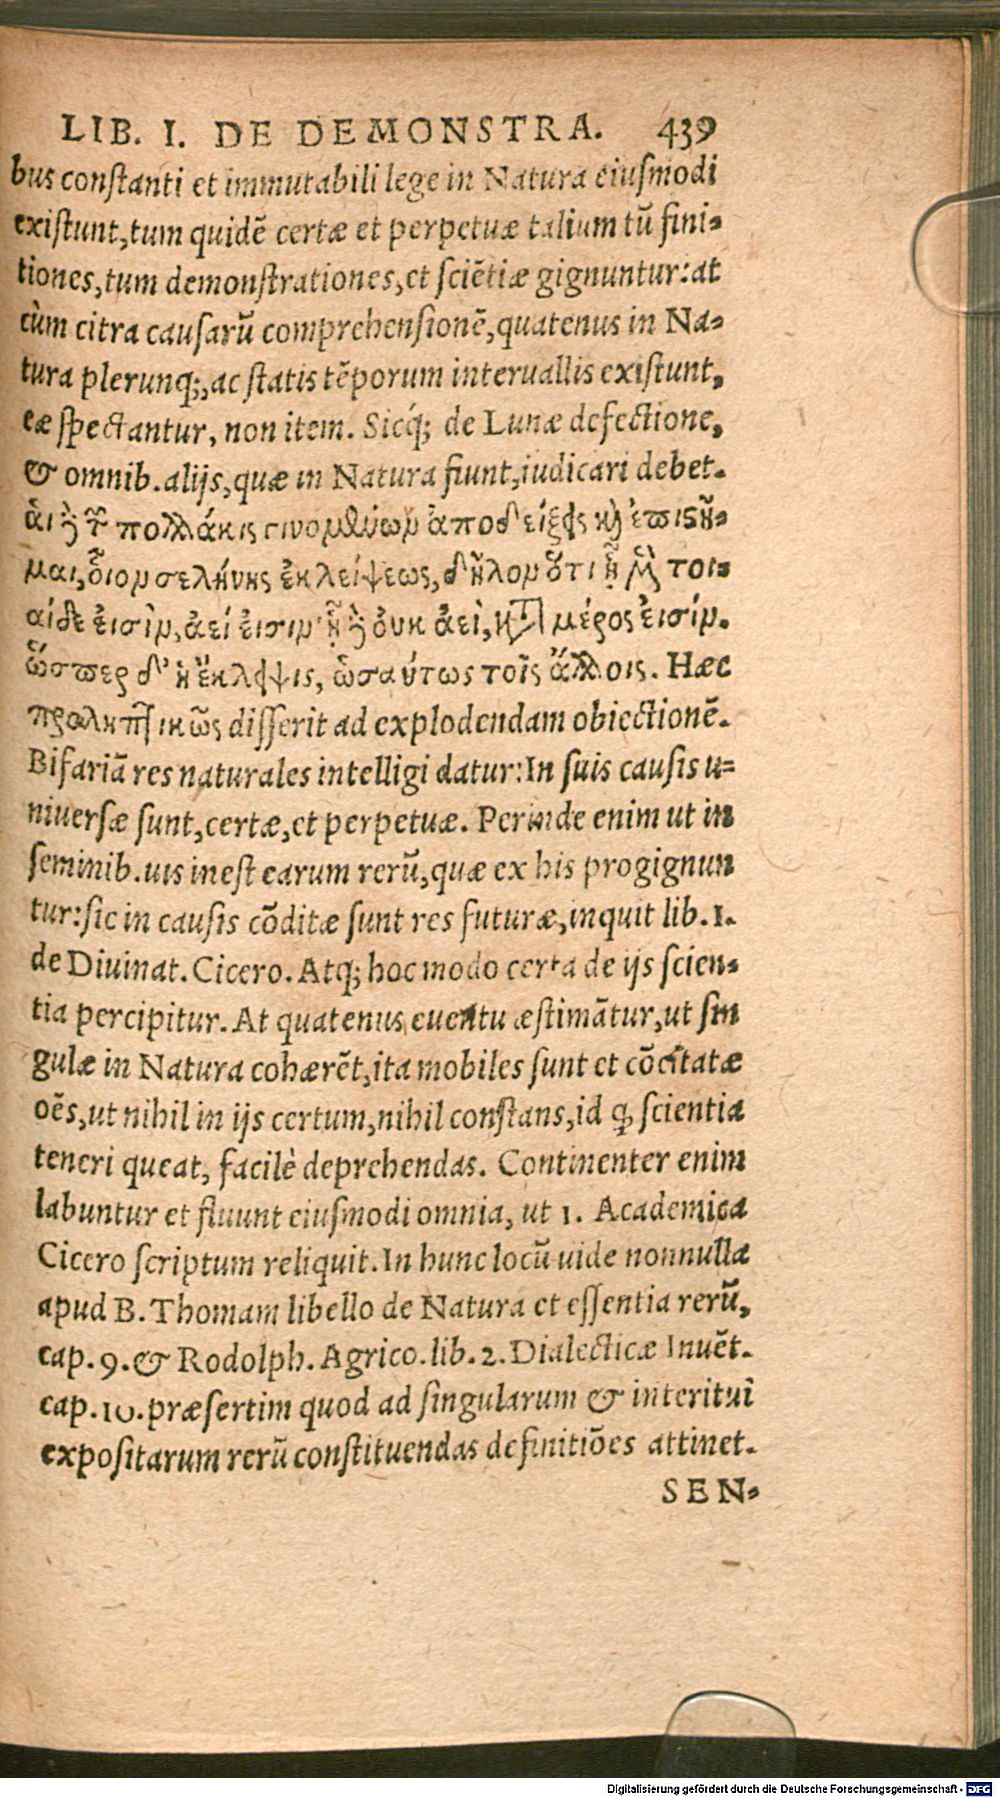 LIB. I. DE DEMONSTRA. 439
bus constanti et immutabili lege in Natura eiuſmodi
exiſtunt, tum quidē certæ et perpetuæ talium tū fini-
tiones, tum demonſtrationes, et ſciētiæ gignuntur: at
cùm citra cauſarū comprehenſionē, quatenus in Na-
tura plerunq;, ac ſtatis tēporum interuallis exiſtunt,
eæ ſpectantur, non item. Sicq́; de Lunæ defectione,
& omnib. alijs, quæ in Natura fiunt, iudicari debet.
ἁι ὃ τ̃ πολλάκις γινομένωμ ἀποδείξεις κὴ ἐπιςῆ-
μαι, ὅιομ σελήνης ἐκλείψεως, δῆλομ ὅτι ᾗ μὲν τοι-
αίδε ἐισὶμ, ἀεί ἐισιμ· ᾗ ὃ ὀυκ ἀεὶ, κατὰ μέρος ἐισίμ.
ὥσπερ δ' ἡ ἔκλειψις, ὡσαύτως τοῖς ἄλλοις. Hæc
προληπτικῶς diſſerit ad explodendam obiectionē.
Bifariā res naturales intelligi datur: In ſuis cauſis u=
niuerſæ ſunt, certæ, et perpetuæ. Perinde enim ut in
ſeminib. uis ineſt earum rerū, quæ ex his progignun
tur: ſic in cauſis cōditæ ſunt res futuræ, inquit lib. 1.
de Diuinat. Cicero. Atq; hoc modo certa de ijs ſcien-
tia percipitur. At quatenus euentu æſtimātur, ut ſin
gulæ in Natura cohærēt, ita mobiles ſunt et cōcitatæ
oēs, ut nihil in ijs certum, nihil conſtans, id ꝙ ſcientia
teneri queat, facilè deprehendas. Continenter enim
labuntur et fluunt eiuſmodi omnia, ut 1. Academica
Cicero ſcriptum reliquit. In hunc locū uide nonnulla
apud B. Thomam libello de Natura et eſſentia rerū,
cap. 9. & Rodolph. Agrico. lib. 2. Dialecticæ Inuēt.
cap. 10. præſertim quod ad ſingularum & interitui
expoſitarum rerū conſtituendas definitiōes attinet.
SEN-
Digitalisierung gefördert durch die Deutsche Forschungsgemeinschaft - DFG